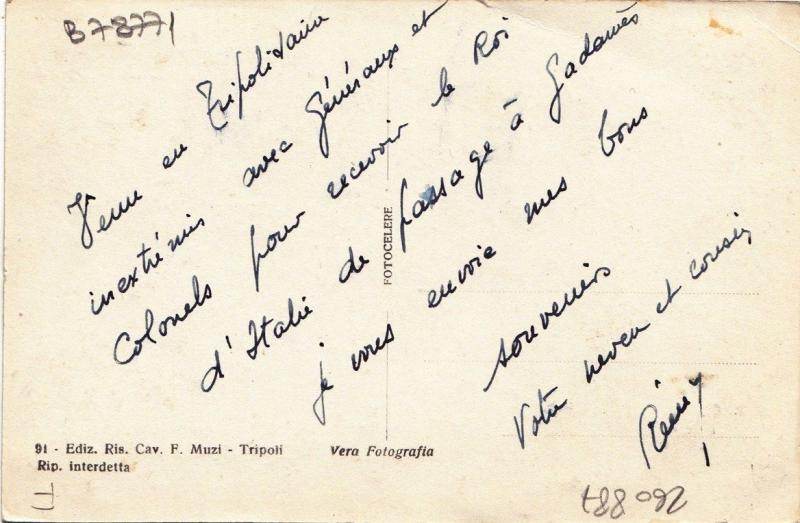 B78771
Venu en Tripolitaine
inextrémis avec Généraux et
Colonels pour recevoir le Roi
d'Italie de passage à Gadamès
je vous envoie mes bons
souvenirs
Votre neveu et cousin
Rémy
FOTOCELERE
91 - Ediz. Ris. Cav. F. Muzi - Tripoli
Rip. interdetta
Vera Fotografia
260887